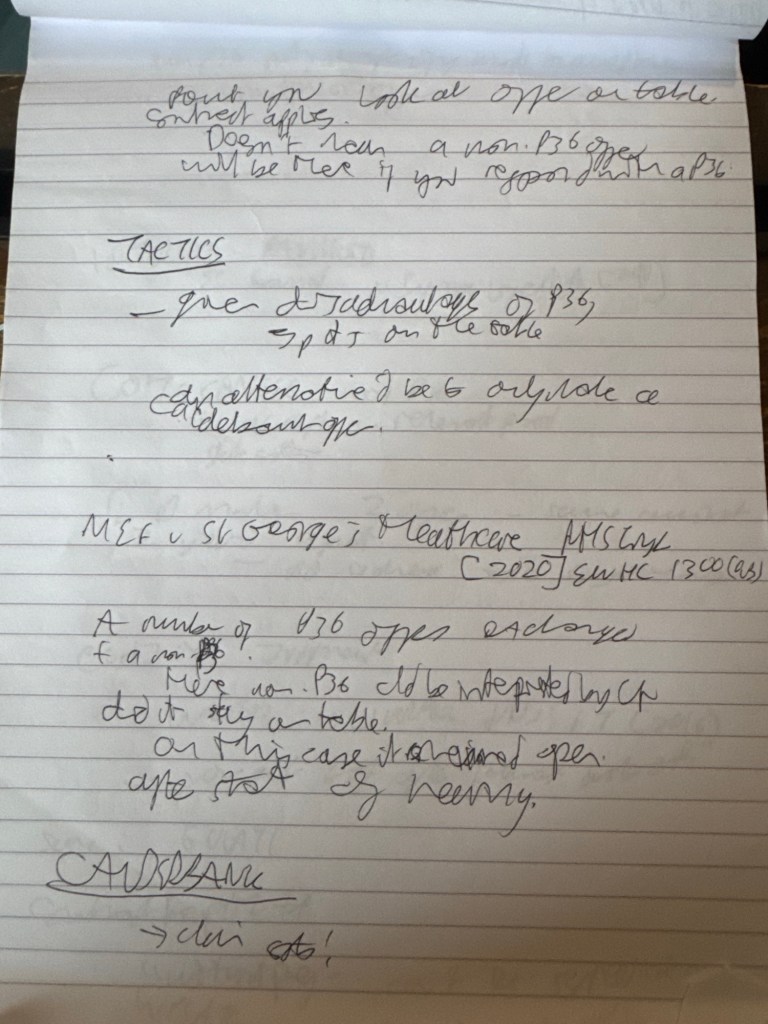 point you look at offer on table
contract applies.
Doesn't mean a non-P36 offer
will be there if you respond with a P36.
TACTICS
- given disadvantages of P36,
on the table
alternative be to only make a
Calderbank offer.
MEF v St George's Healthcare NHS Trust
[2020] EWHC 1300 (QB)
A number of P36 offers exchanged
+ a non-P36.
Here non-P36 cld be interpreted by Ct
did it stay on table.
on this case it remained open
after start of hearing.
CALDERBANK
→ claim costs!